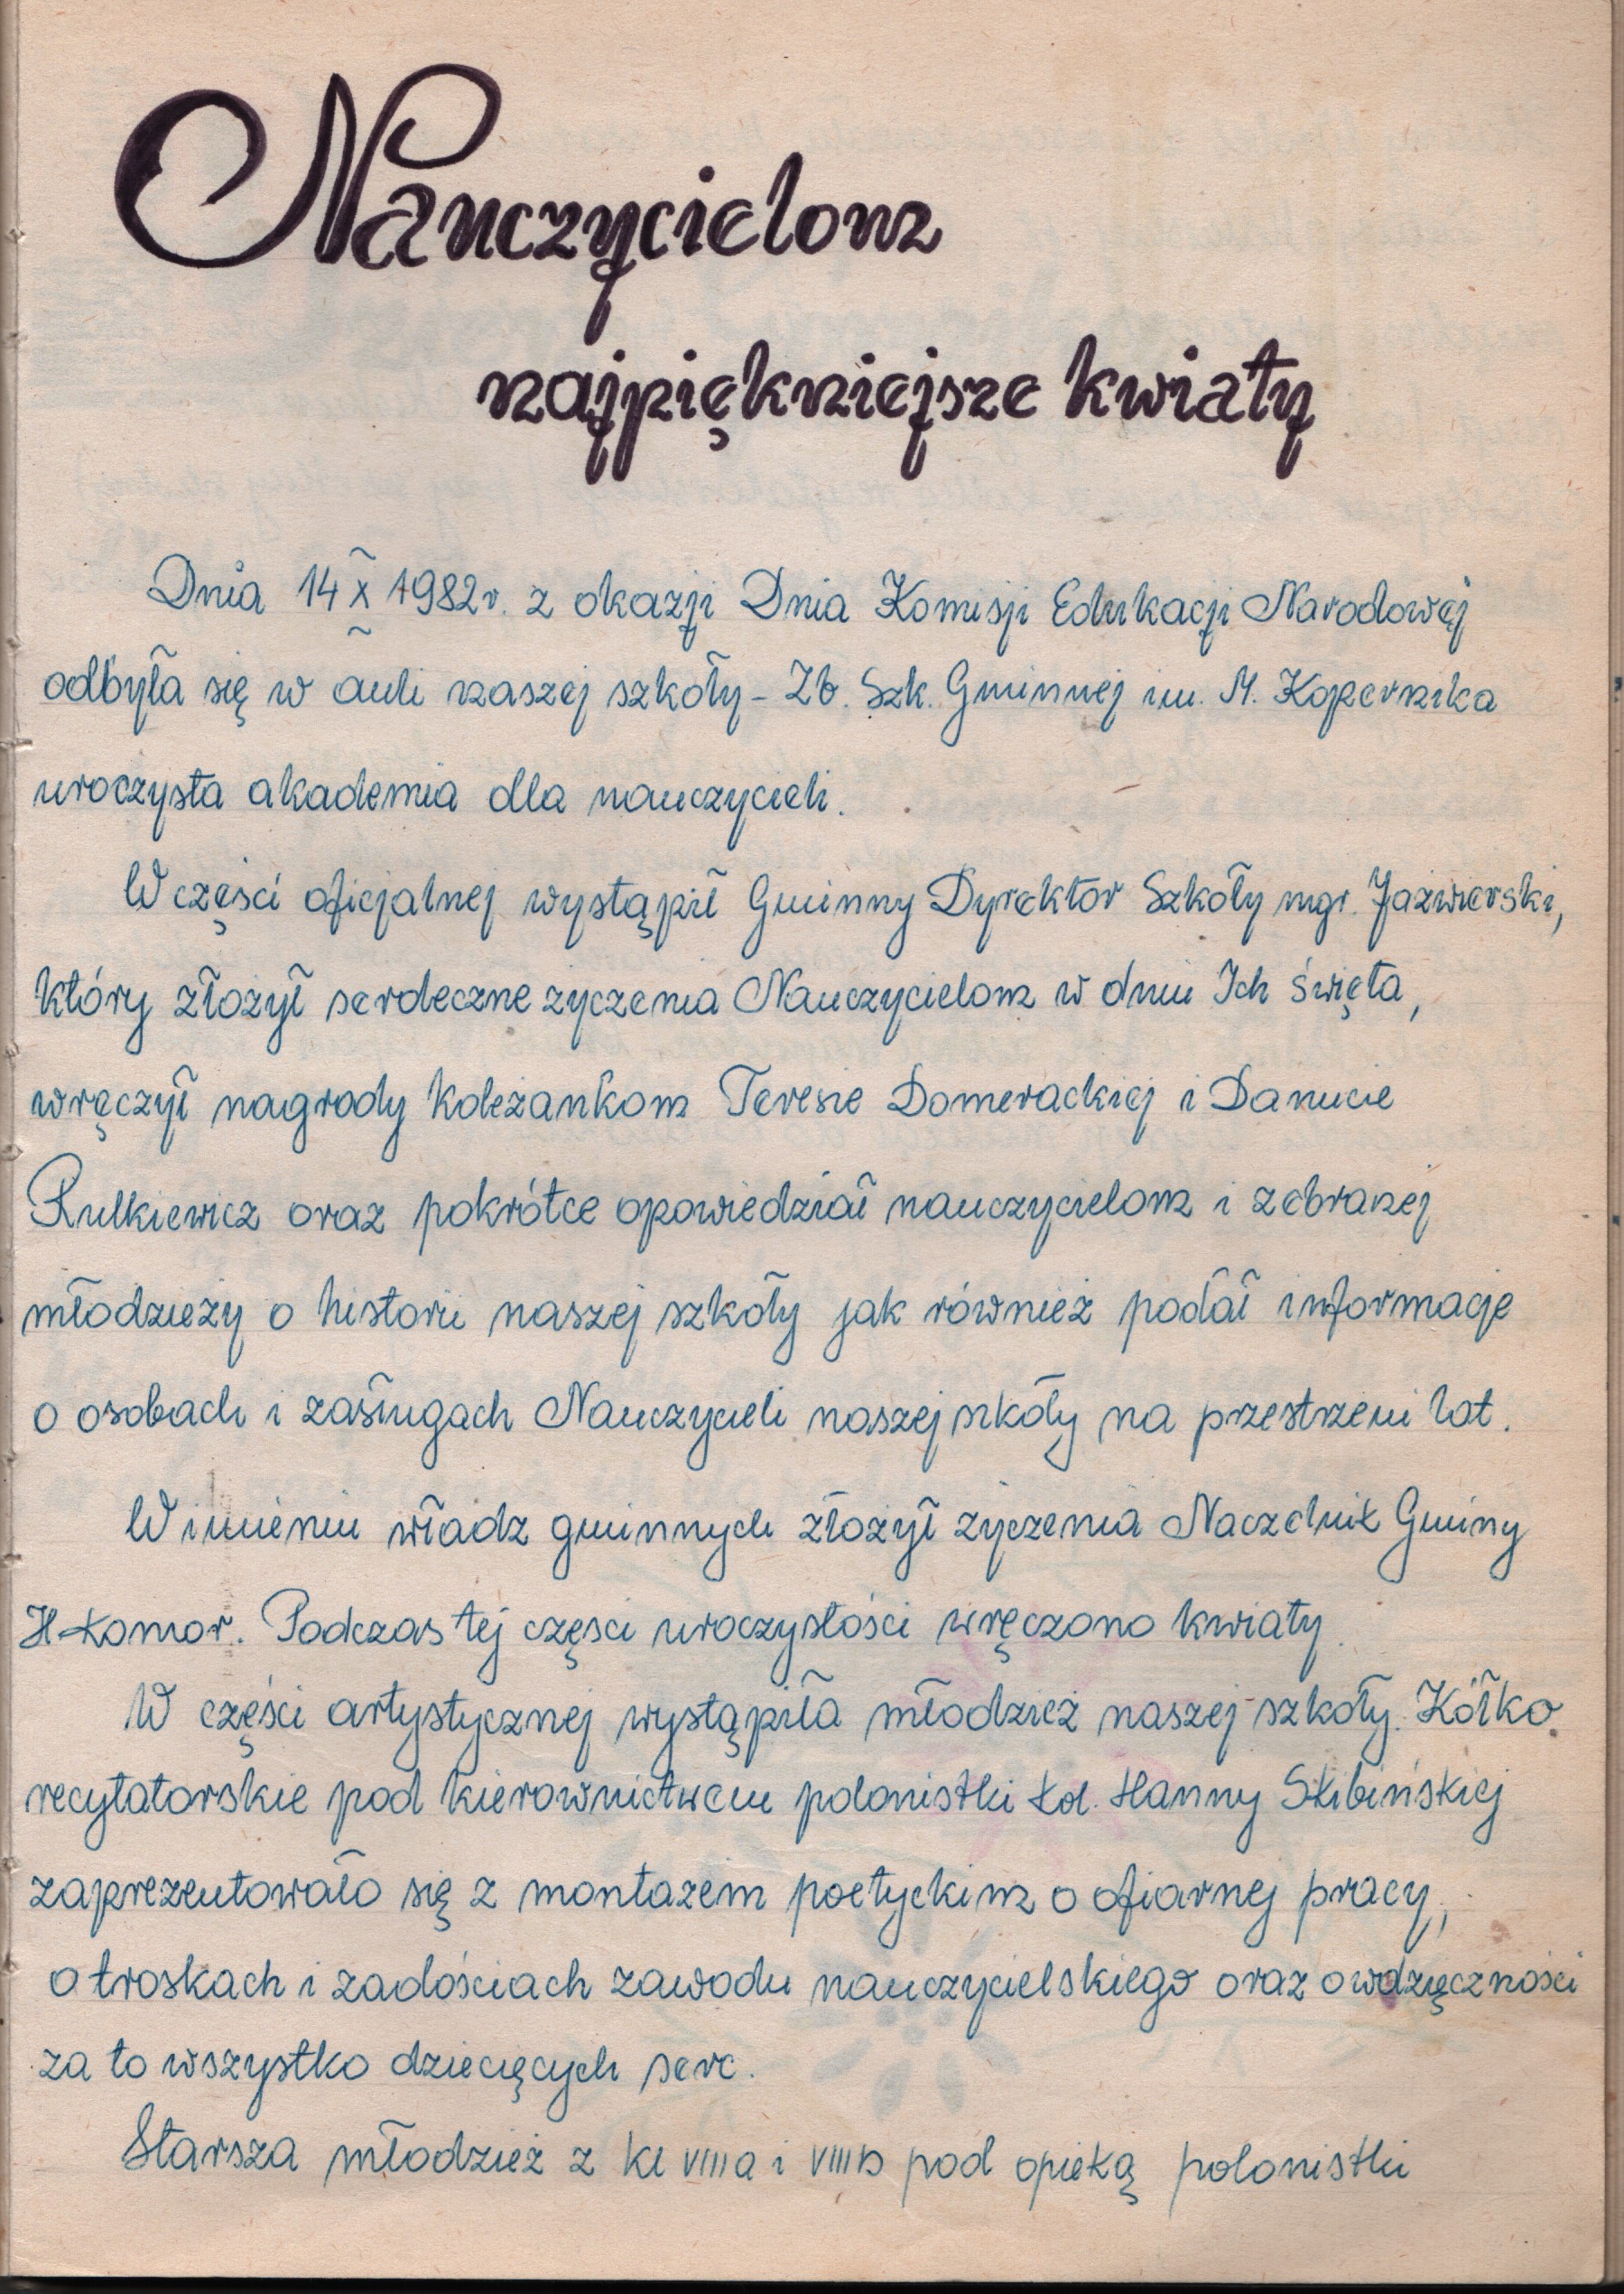 Nauczycielom
najpiękniejsze kwiaty
Dnia 14 X 1982r. z okazji Dnia Komisji Edukacji Narodowej
odbyła się w auli naszej szkoły - Zb. Szk. Gminnej im. M. Kopernika
uroczysta akademia dla nauczycieli.
W części oficjalnej wystąpił Gminny Dyrektor Szkoły mgr. Jaźwierski,
który złożył serdeczne życzenia Nauczycielom w dniu Ich święta,
wręczył nagrody koleżankom Teresie Domerackiej i Danucie
Rulkiewicz oraz pokrótce opowiedział nauczycielom i zebranej
młodzieży o historii naszej szkoły jak również podał informacje
o osobach i zasługach Nauczycieli naszej szkoły na przestrzeni lat.
W imieniu władz gminnych złożył życzenia Naczelnik Gminy
H. Komor. Podczas tej części uroczystości wręczono kwiaty.
W części artystycznej wystąpiła młodzież naszej szkoły. Kółko
recytatorskie pod kierownictwem polonistki kol. Hanny Skibińskiej
zaprezentowało się z montażem poetyckim o ofiarnej pracy,
o troskach i zadościach zawodu nauczycielskiego oraz o wdzięczności
za to wszystko dziecięcych serc.
Starsza młodzież z kl VIII a i VIII b pod opieką polonistki